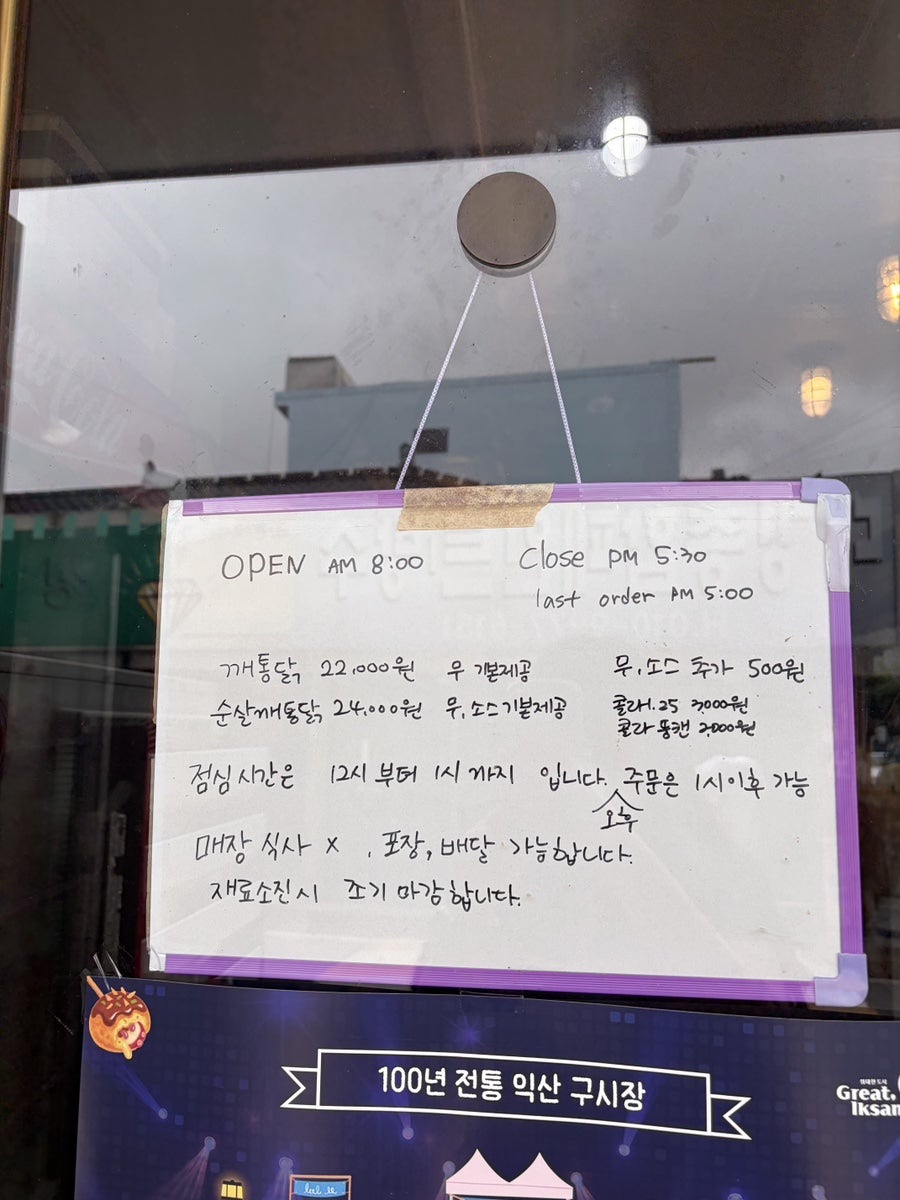 OPEN AM 8:00 Close PM 5:30
last order PM 5:00
깨통닭 22,000원 무 기본제공 무,소스 추가 500원
순살깨통닭 24,000원 무,소스기본제공 콜라1.25 3,000원
콜라 뚱캔 2,000원
점심시간은 12시 부터 1시 까지 입니다. 주문은 오후 1시이후 가능
매장 식사 x , 포장, 배달 가능합니다.
재료소진시 조기 마감합니다.
100년 전통 익산 구시장
위대한 도시
Great,
Iksan